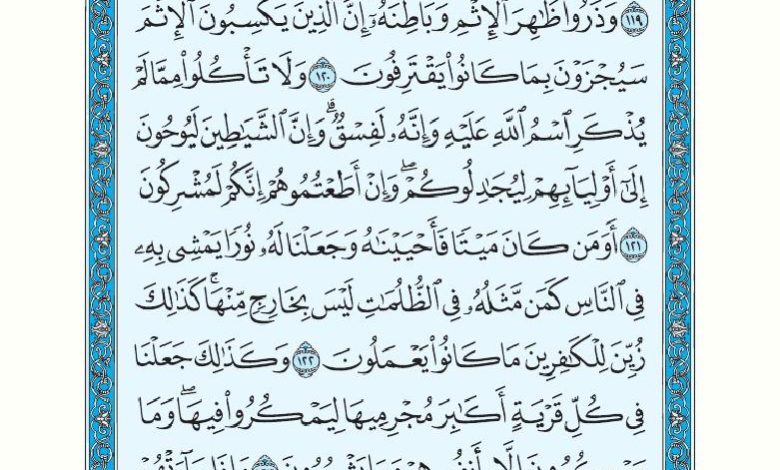 ١١٩ وَذَرُوا۟ ظَٰهِرَ ٱلْإِثْمِ وَبَاطِنَهُۥٓ ۚ إِنَّ ٱلَّذِينَ يَكْسِبُونَ ٱلْإِثْمَ
سَيُجْزَوْنَ بِمَا كَانُوا۟ يَقْتَرِفُونَ ١٢٠ وَلَا تَأْكُلُوا۟ مِمَّا لَمْ
يُذْكَرِ ٱسْمُ ٱللَّهِ عَلَيْهِ وَإِنَّهُۥ لَفِسْقٌ ۗ وَإِنَّ ٱلشَّيَٰطِينَ لَيُوحُونَ
إِلَىٰٓ أَوْلِيَآئِهِمْ لِيُجَٰدِلُوكُمْ ۖ وَإِنْ أَطَعْتُمُوهُمْ إِنَّكُمْ لَمُشْرِكُونَ
١٢١ أَوَمَن كَانَ مَيْتًا فَأَحْيَيْنَٰهُ وَجَعَلْنَا لَهُۥ نُورًا يَمْشِى بِهِۦ
فِى ٱلنَّاسِ كَمَن مَّثَلُهُۥ فِى ٱلظُّلُمَٰتِ لَيْسَ بِخَارِجٍ مِّنْهَا ۚ كَذَٰلِكَ
زُيِّنَ لِلْكَٰفِرِينَ مَا كَانُوا۟ يَعْمَلُونَ ١٢٢ وَكَذَٰلِكَ جَعَلْنَا
فِى كُلِّ قَرْيَةٍ أَكَٰبِرَ مُجْرِمِيهَا لِيَمْكُرُوا۟ فِيهَا ۖ وَمَا